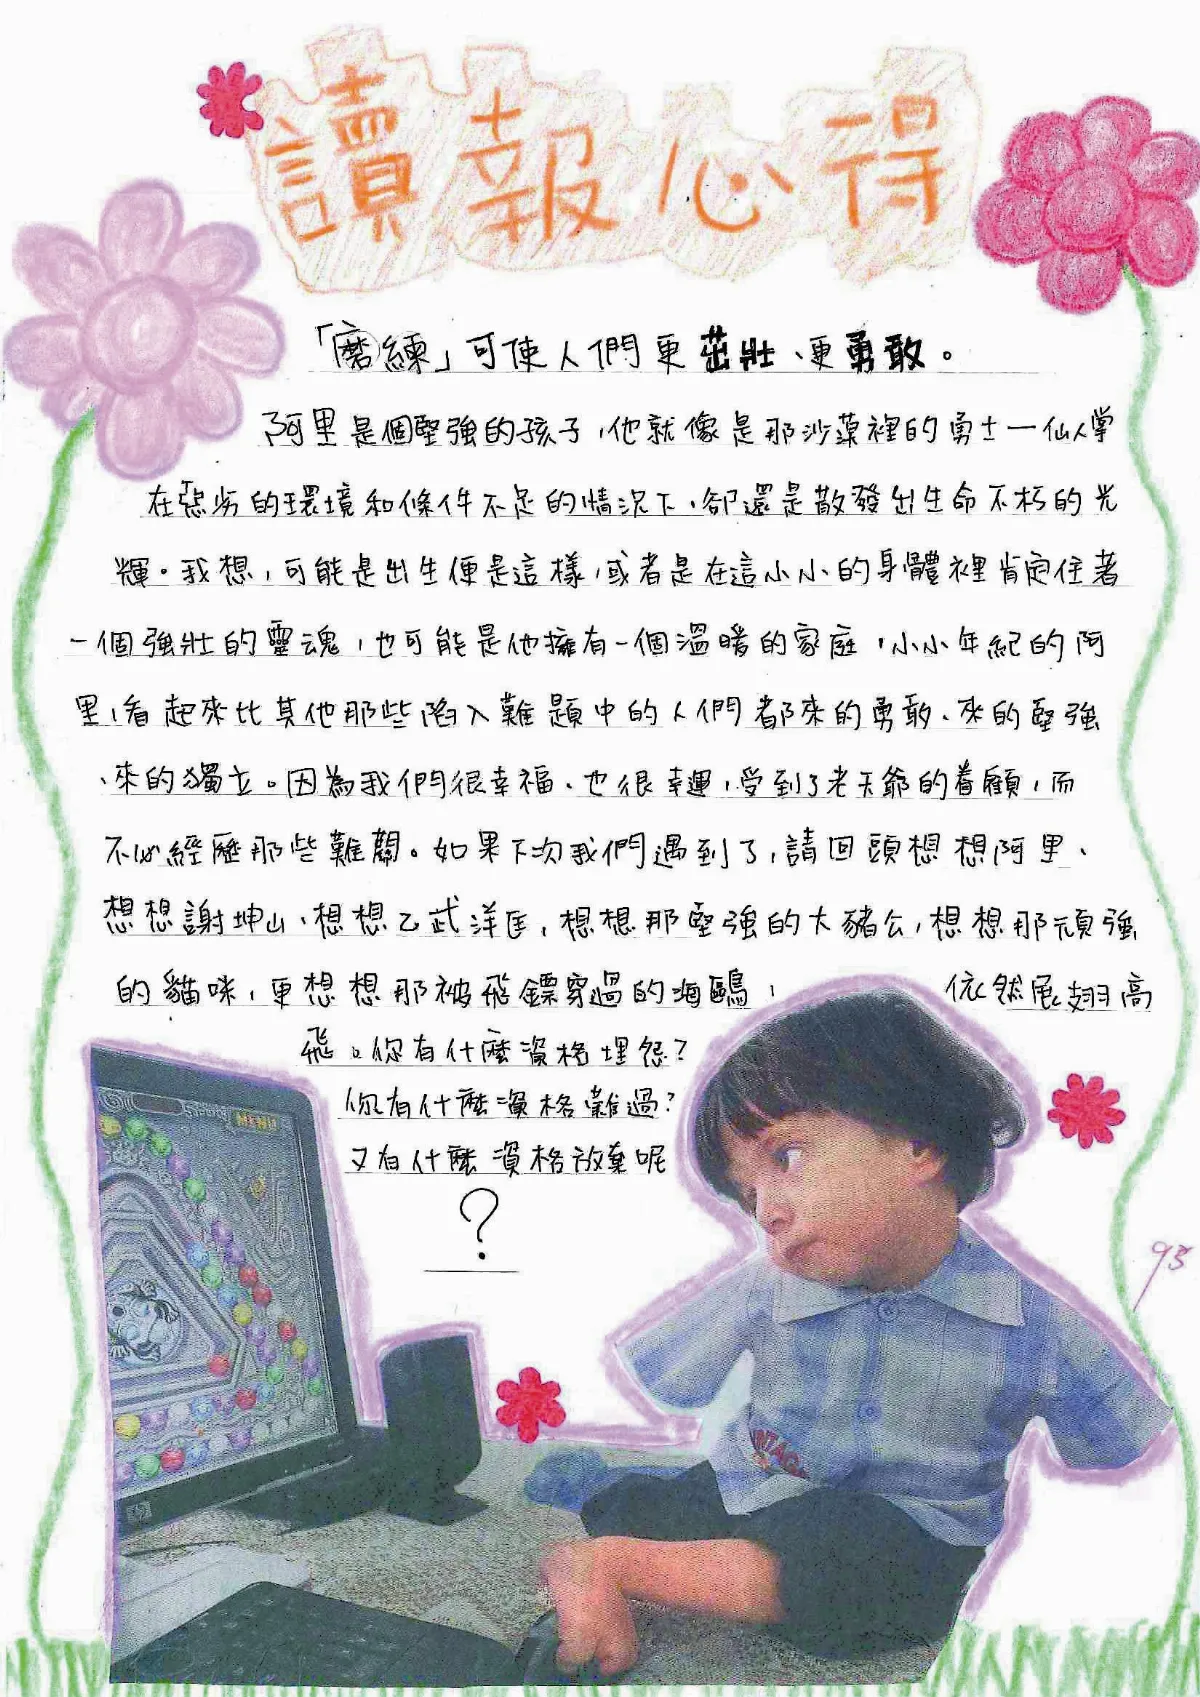 讀報心得
「磨練」可使人們更茁壯、更勇敢。
阿里是個堅強的孩子，他就像是那沙漠裡的勇士—仙人掌
在惡劣的環境和條件不足的情況下，卻還是散發出生命不朽的光
輝。我想，可能是出生便是這樣，或者是在這小小的身體裡肯定住著
一個強壯的靈魂，也可能是他擁有一個溫暖的家庭，小小年紀的阿
里，看起來比其他那些陷入難題中的人們都來的勇敢、來的堅強
、來的獨立。因為我們很幸福、也很幸運，受到了老天爺的眷顧，而
不必經歷那些難關。如果下次我們遇到了，請回頭想想阿里、
想想謝坤山、想想乙武洋匡，想想那堅強的大豬公，想想那頑強
的貓咪，更想想那被飛鏢穿過的海鷗，依然展翅高
飛。你有什麼資格埋怨？
你有什麼資格難過？
又有什麼資格放棄呢
？
MENU
hp
93